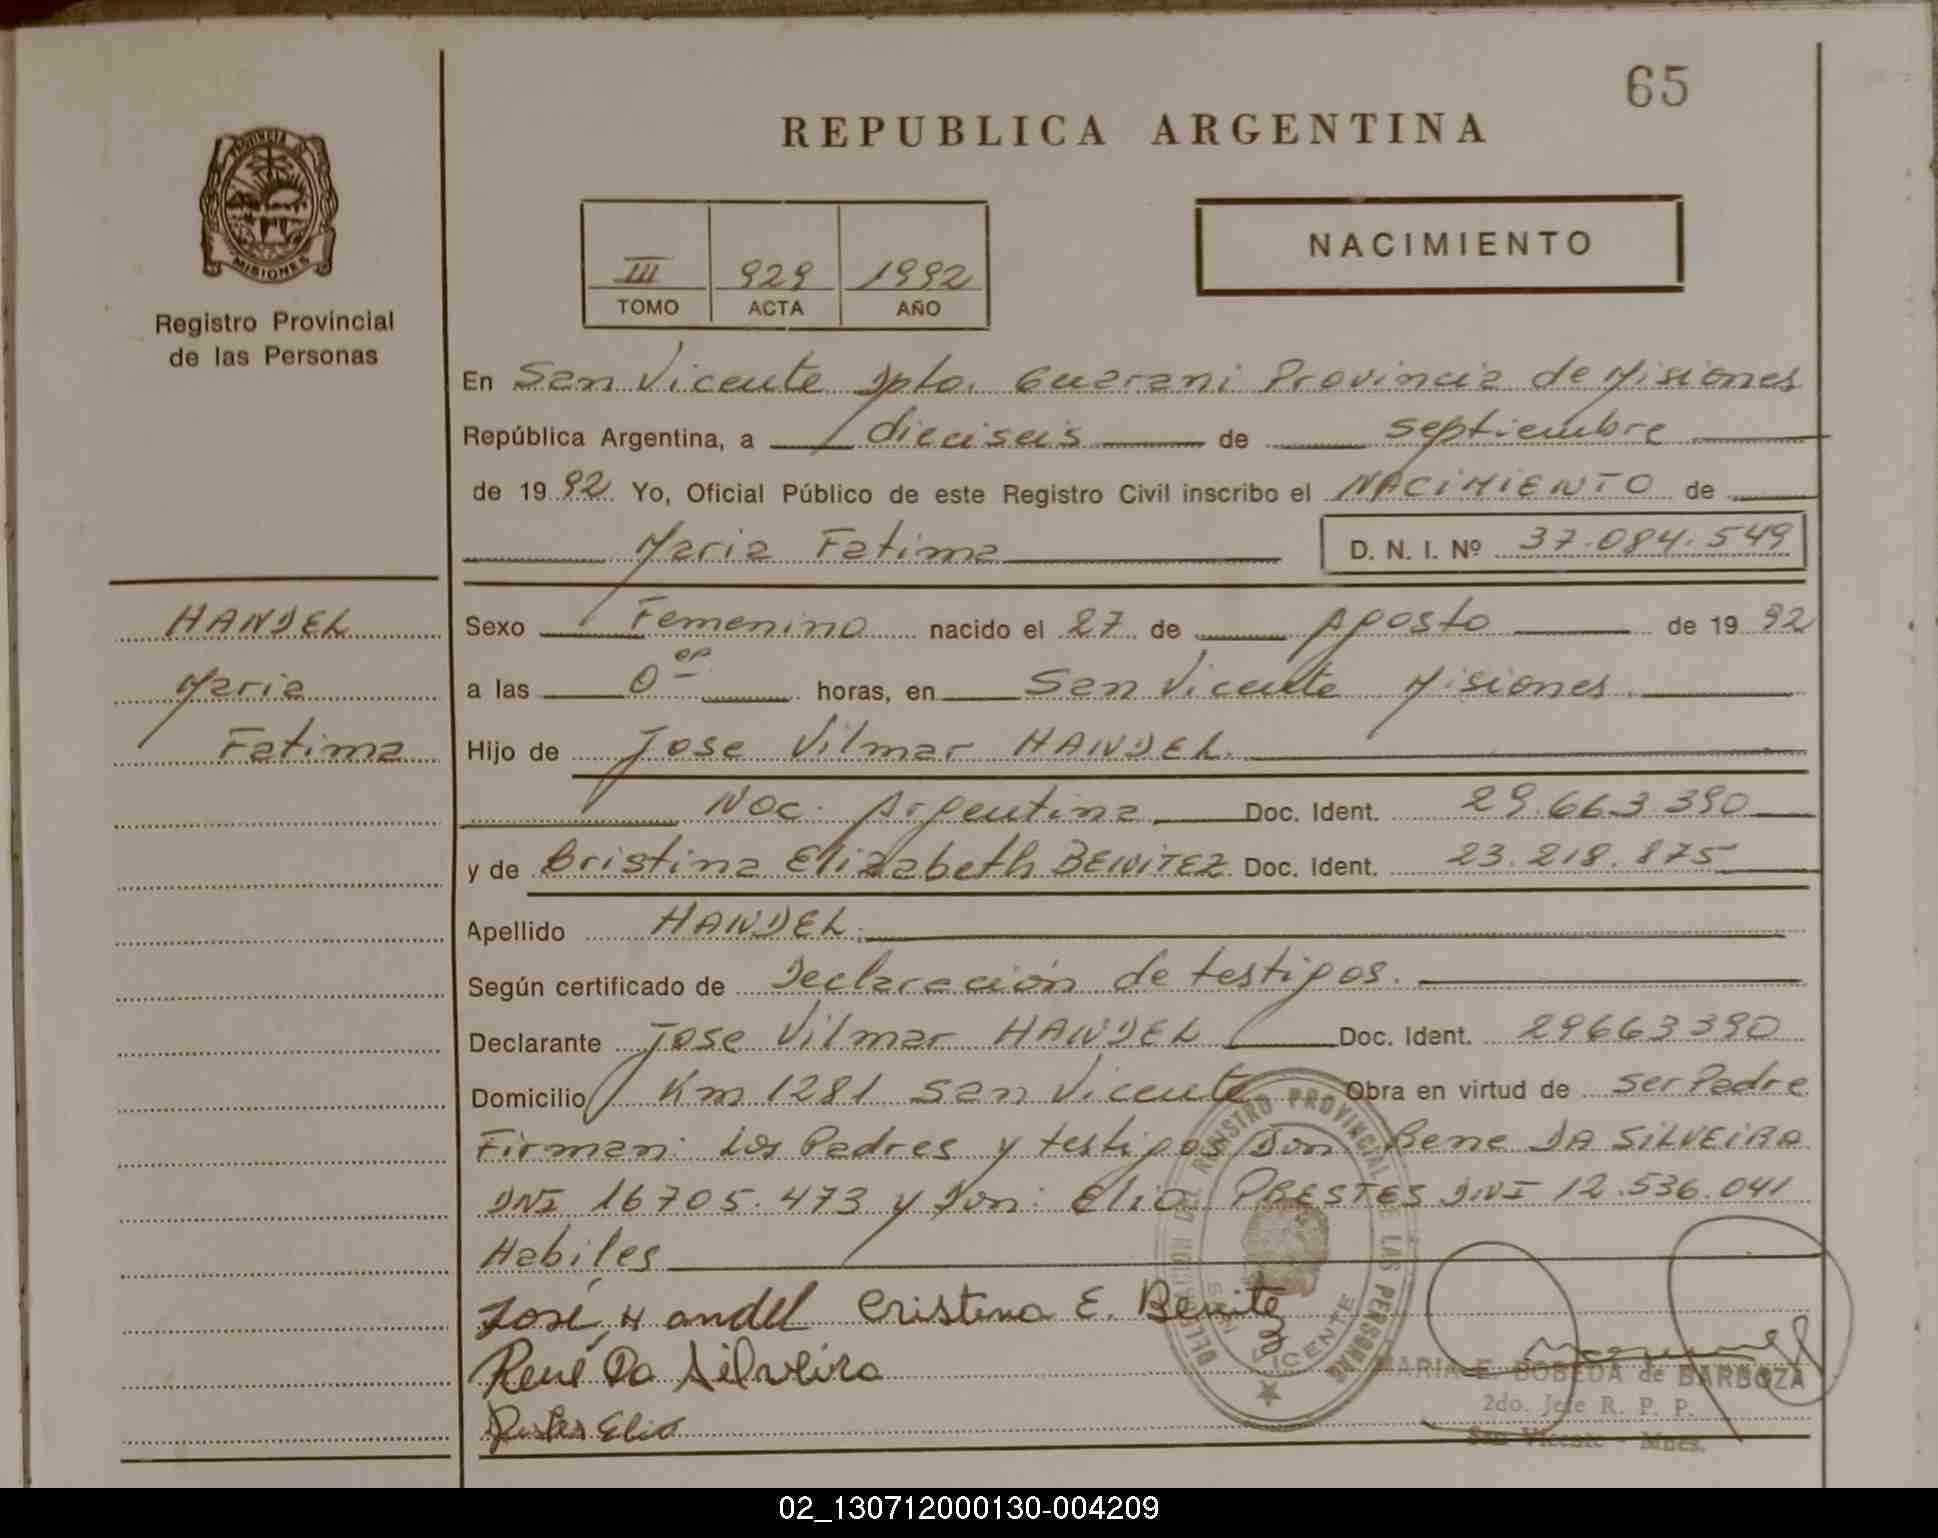 65
REPUBLICA ARGENTINA
PROVINCIA DE
MISIONES
Registro Provincial
de las Personas
III 929 1992
TOMO ACTA AÑO
NACIMIENTO
En San Vicente Dpto. Guarani Provincia de Misiones
República Argentina, a dieciseis de septiembre
de 1992 Yo, Oficial Público de este Registro Civil inscribo el NACIMIENTO de
Maria Fatima D. N. I. Nº 37.084.549
HANDEL
Maria
Fatima
Sexo Femenino nacido el 27 de Agosto de 1992
a las 0 horas, en San Vicente Misiones.
Hijo de Jose Vilmar HANDEL.
Nac. Argentina Doc. Ident. 29.663.390
y de Cristina Elizabeth BENITEZ Doc. Ident. 23.218.875
Apellido HANDEL.
Según certificado de Declaración de testigos.
Declarante Jose Vilmar HANDEL Doc. Ident. 29663390
Domicilio Km 1281 San Vicente Obra en virtud de ser Padre
Firman: Los Padres y testigos Don: Rene DA SILVEIRA
DNI 16705.473 y Don: Elio PRESTES DNI 12.536.041
Habiles
José Handel Cristina E. Benitez
René Da Silveira
Elio
DELEGACION DEL REGISTRO PROVINCIAL DE LAS PERSONAS
VICENTE
MARIA E. BOBEDA de BARBOZA
2do. Jefe R. P. P.
San Vicente - Mnes.
02_130712000130-004209